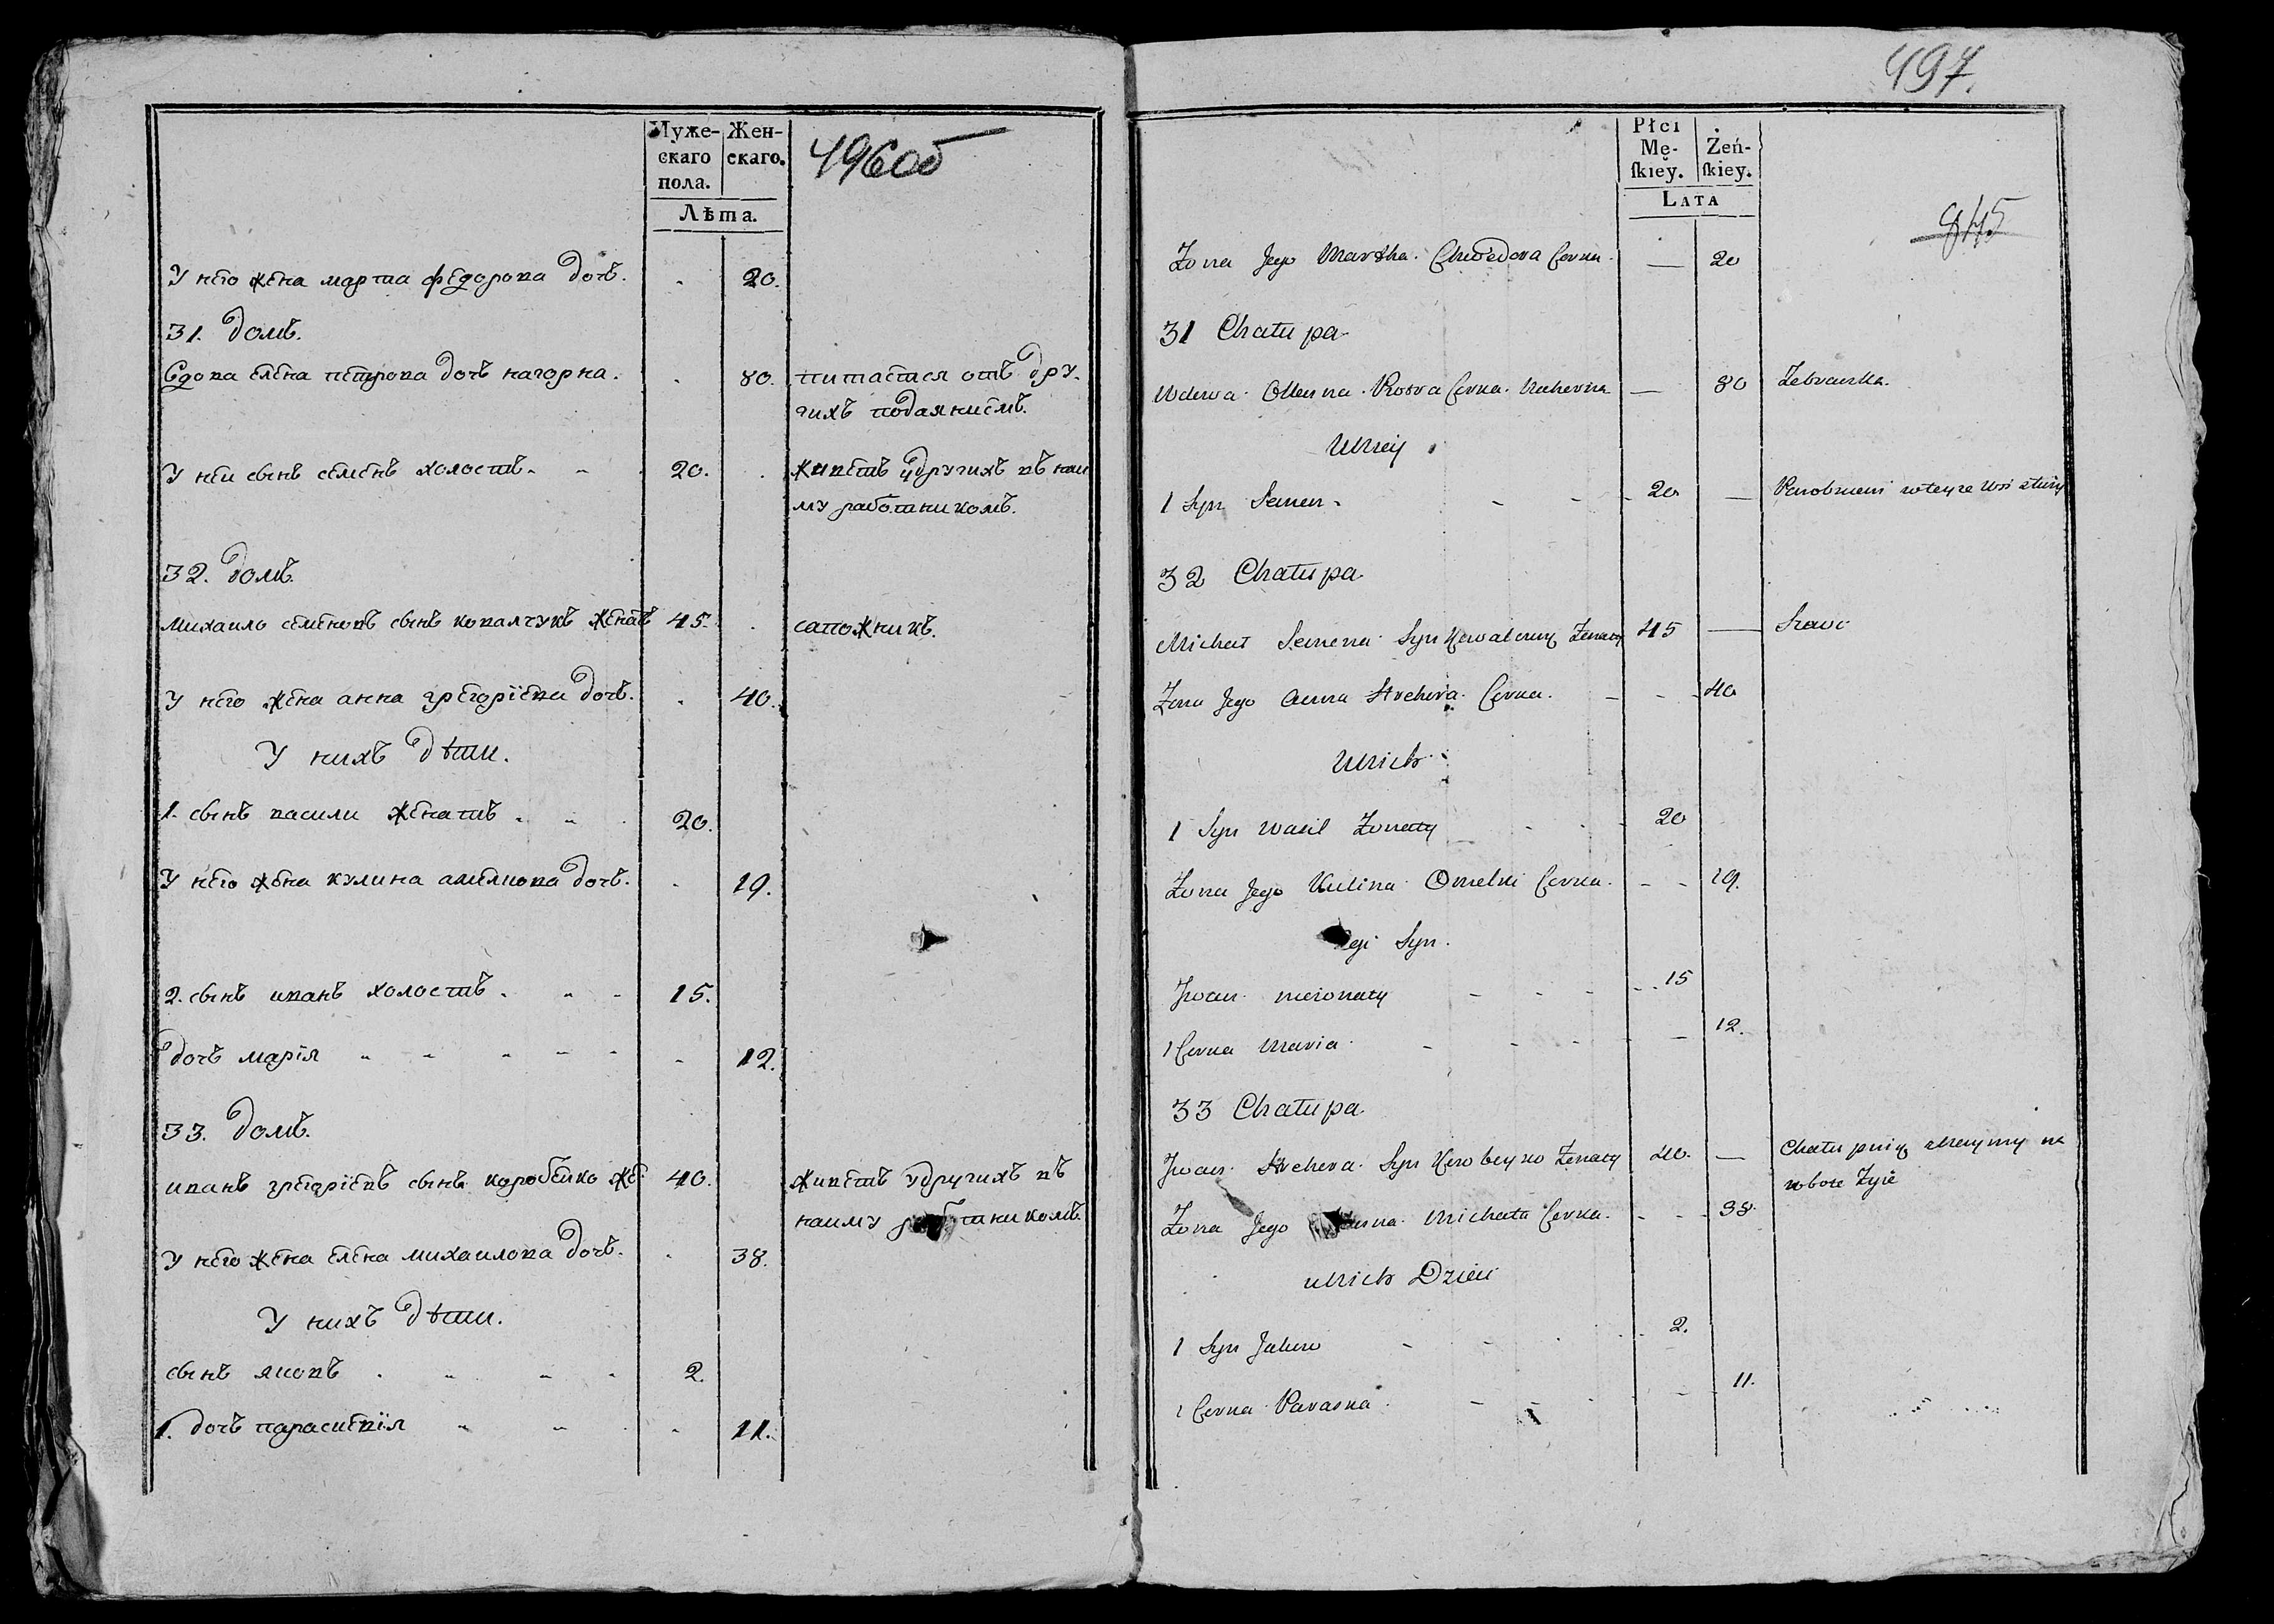 Мужескаго пола.
Женскаго.
Лѣта.
496об
У него жена марта федорова дочь. - 20.
31. домъ.
вдова елена петрова дочь нагорна. - 80. питается отъ дру-
гихъ подаяниемъ.
У неи сынъ семенъ холостъ - - 20. живетъ у другихъ въ наи
му работникомъ.
32. домъ.
михаило семеновъ сынъ ковалчукъ женатъ 45. сапожникъ.
у него жена анна григорїева дочь. - 40.
У нихъ дѣти.
1. сынъ васили женатъ - - 20.
У него жена кулина дочь. - 19.
2. сынъ иванъ холостъ - - - 15.
дочь марїя - - - - - 12.
33. домъ.
иванъ григорїевъ сынъ коробейко же. 40. живетъ у другихъ въ
наиму работникомъ.
У него жена елена михаилова дочь. - 38.
У нихъ дѣти.
сынъ яковъ - - - - 2.
1. дочь параскевїя - - - 11.
497.
Płci Mę-
ſkiey.
Żeń-
ſkiey.
LATA
845
Zona Jego Martha Chwedora Corka — 20
31 Chałupa
Wdowa Ollenna Corka — 80 Zebraczka
U Niey
1 Syn Semen - - - 20 —
32 Chałupa
Michał Semena Syn Kowalczuk Zonaty 45 — Szewc
Zona Jego Anna Hrehora Corka. - - - 40
U Nich
1 Syn Wasil Zonaty - - - 20
Zona Jego Kulina Omelki Corka. - - 19.
Syn.
Jwan niezonaty - - - - 15
1 Corka Maria - - - - - 12.
33 Chałupa
Jwan Hrehora Syn Korobeyko Zonaty 40. — Chałupnik na
robocie Zyie
Zona Jego Michała Corka. - - - 38.
u Nich Dzieci
1 Syn Jakow - - - - 2.
1 Corka Paraska - - - - 11.